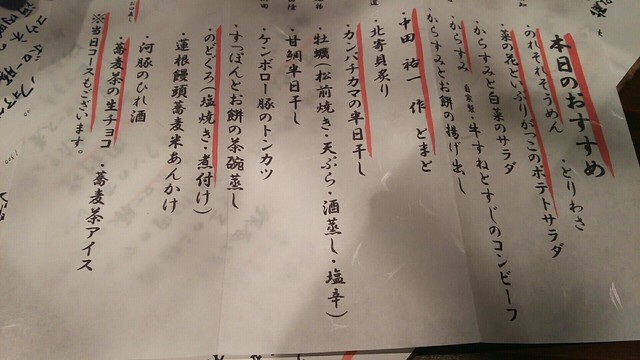 本日のおすすめ
・のれそれそうめん ・とりわさ
・菜の花といぶりがっこのポテトサラダ
・からすみと白菜のサラダ
・からすみ 自家製・牛すねとすじのコンビーフ
・からすみとお餅の揚げ出し
中田 祐一 作 とまと
・北寄貝炙り
・カンパチカマの半日干し
・牡蠣(松前焼き・天ぷら・酒蒸し・塩辛)
・甘鯛半日干し
・ケンボロー豚のトンカツ
・すっぽんとお餅の茶碗蒸し
・のどぐろ(塩焼き・煮付け)
・蓮根饅頭蕎麦米あんかけ
・河豚のひれ酒
・蕎麦茶の生チョコ ・蕎麦茶アイス
※当日コースもございます。